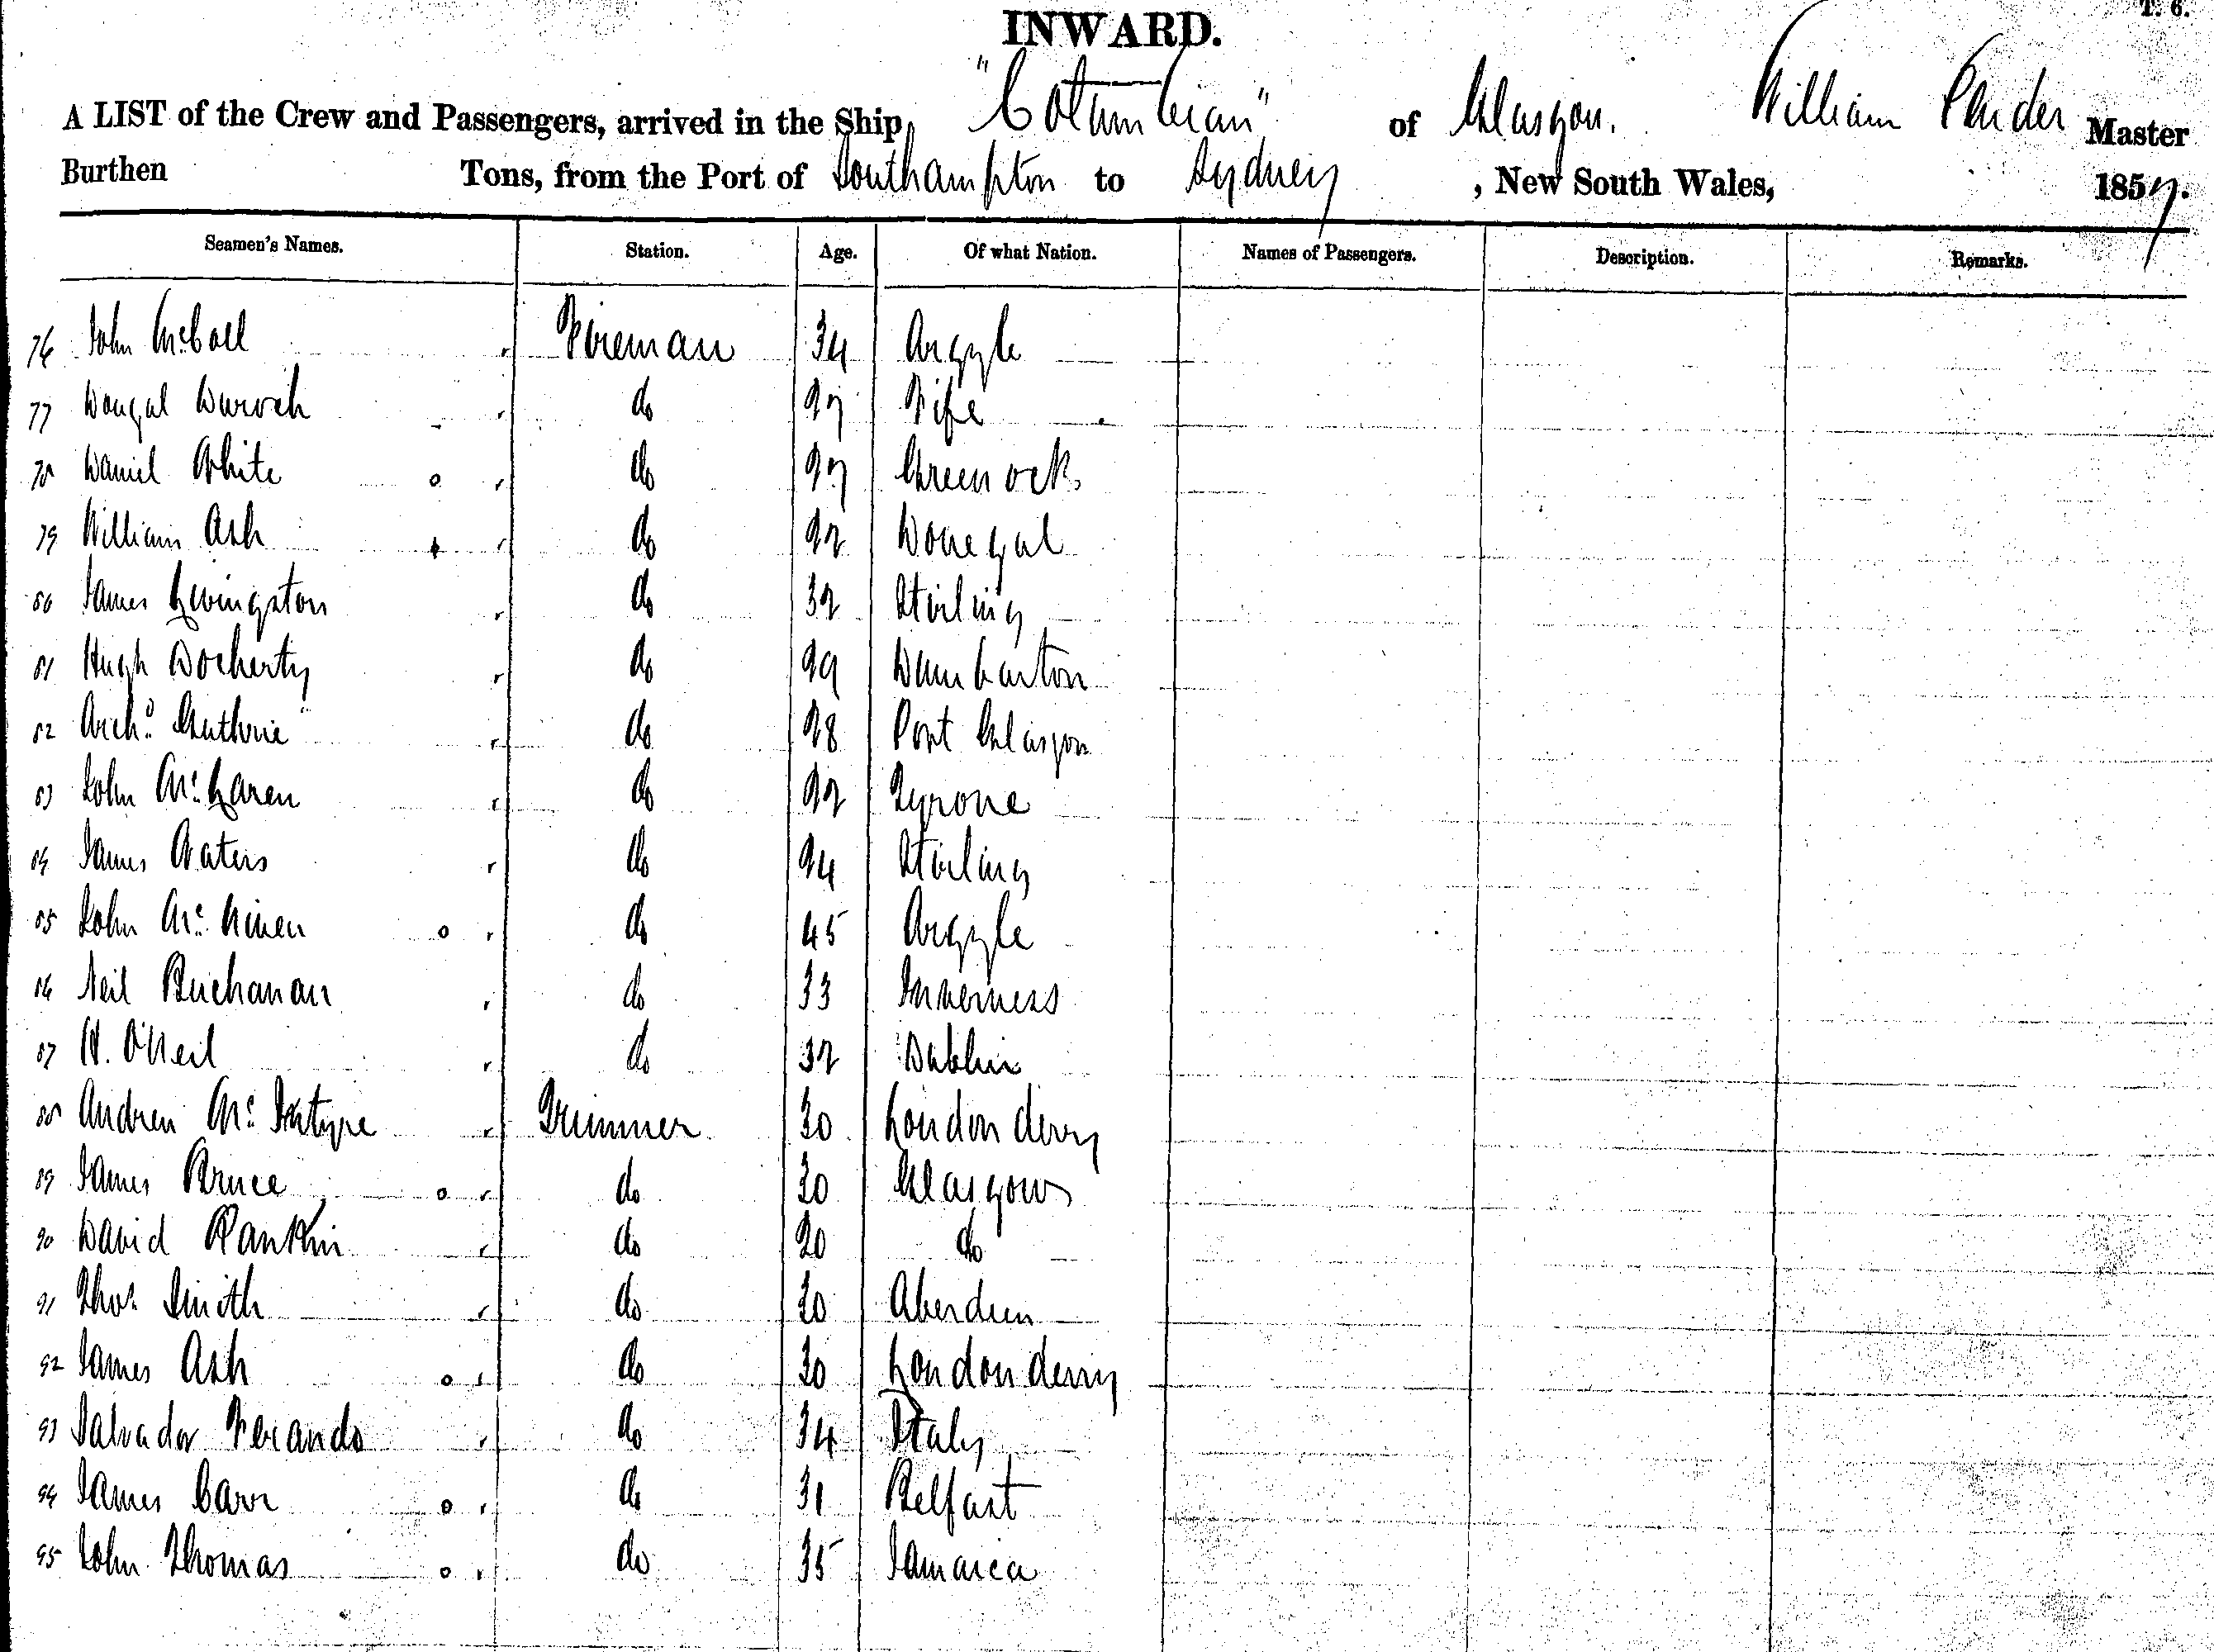 T. 6.
INWARD.
A LIST of the Crew and Passengers, arrived in the Ship, "Columbian" of Glasgow. William Master
Burthen Tons, from the Port of Southampton to Sydney, New South Wales, 1857.
Seamen's Names. Station. Age. Of what Nation. Names of Passengers. Description. Remarks.
76 John McColl Fireman 34 Argyle
77 Dougal Duroch do 27 Fife
78 Daniel White do 27 Greenock
79 William Ash do 22 Donegal
80 James Livingston do 32 Stirling
81 Hugh Docherty do 29 Dumbarton
82 Archd. Guthrie do 28 Port Glasgow
83 John McLaren do 22 Tyrone
84 James Waters do 24 Stirling
85 John Mc Niven do 45 Argyle
86 Neil Buchanan do 33 Inverness
87 H. O'Neil do 32 Dublin
88 Andrew Mc Intyre Trimmer 30 Londonderry
89 James Bruce do 20 Glasgow
90 David Rankin do 20 do
91 Thos Smith do 20 Aberdeen
92 James Ash do 30 Londonderry
93 Salvador Ferando do 34 Italy
94 James Carr do 31 Belfast
95 John Thomas do 35 Jamaica